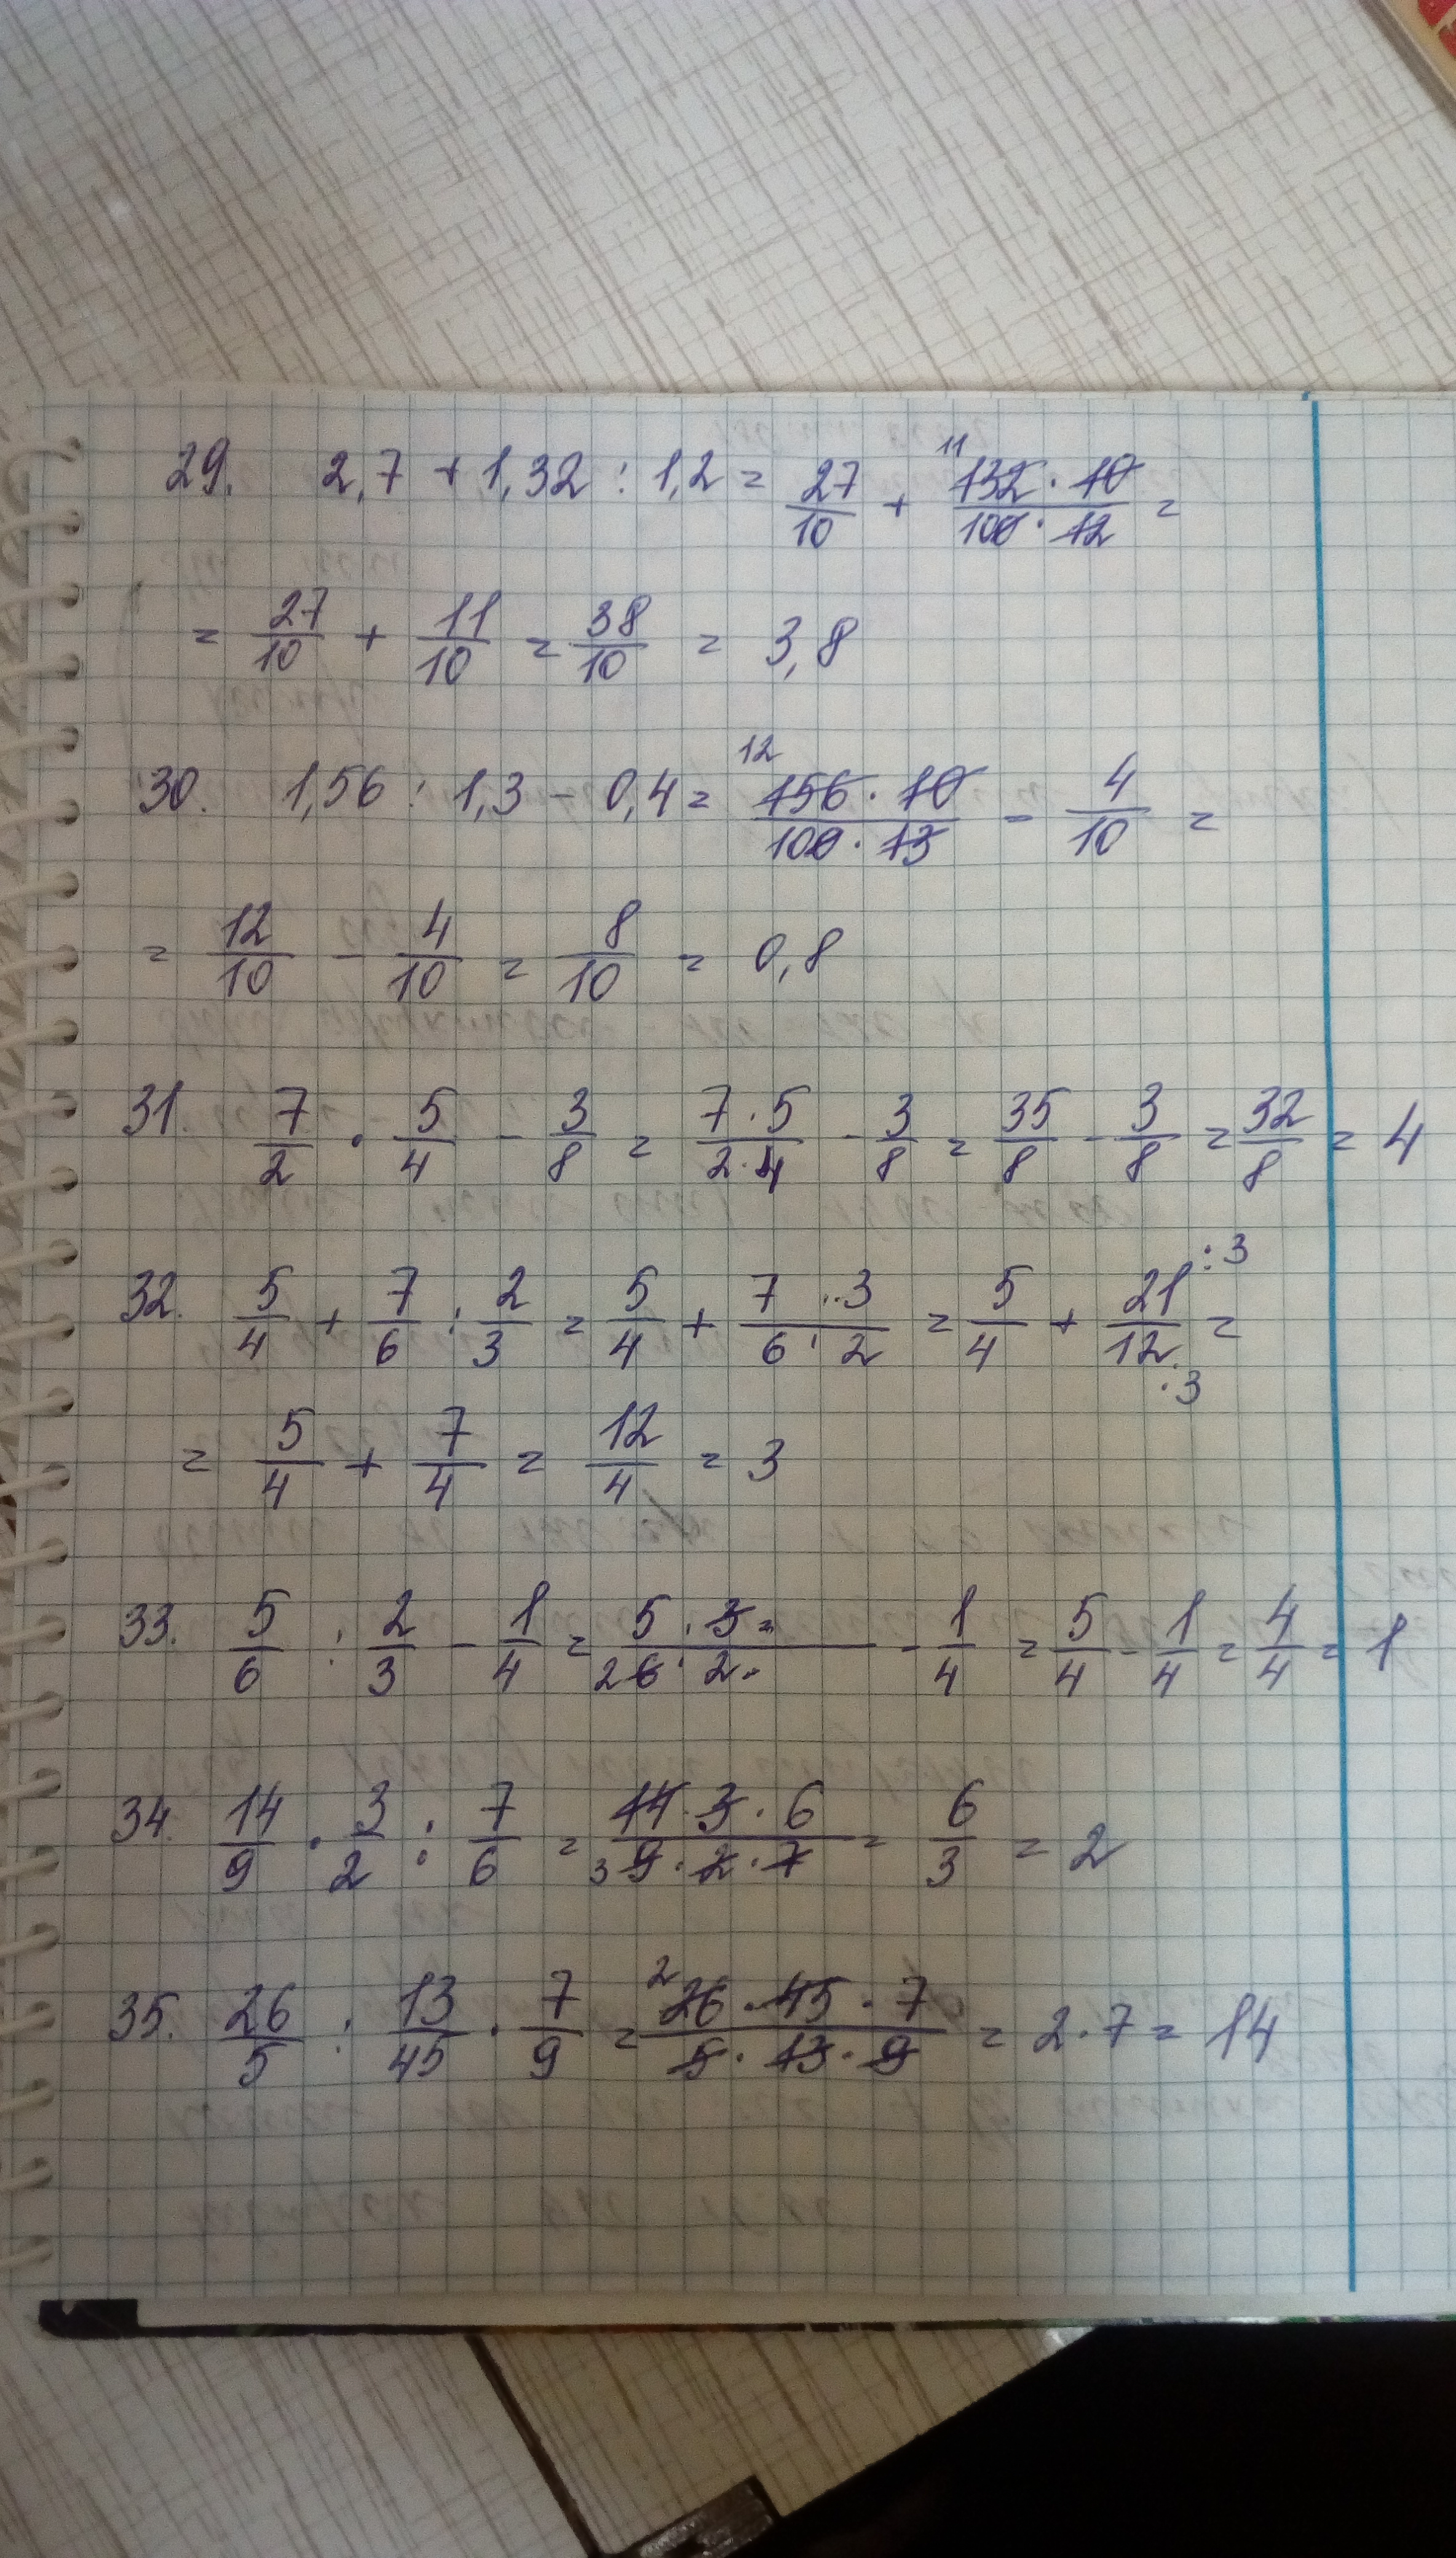 29. 2,7 + 1,32 : 1,2 = 27/10 + 11 132 · 10 / 100 · 12 =
= 27/10 + 11/10 = 38/10 = 3,8
30. 1,56 : 1,3 - 0,4 = 12 156 · 10 / 100 · 13 - 4/10 =
= 12/10 - 4/10 = 8/10 = 0,8
31. 7/2 · 5/4 - 3/8 = 7 · 5 / 2 · 4 - 3/8 = 35/8 - 3/8 = 32/8 = 4
32. 5/4 + 7/6 : 2/3 = 5/4 + 7 · 3 / 6 · 2 = 5/4 + 21 :3 / 12 :3 =
= 5/4 + 7/4 = 12/4 = 3
33. 5/6 : 2/3 - 1/4 = 5 · 3 / 2 6 · 2 - 1/4 = 5/4 - 1/4 = 4/4 = 1
34. 14/9 · 3/2 : 7/6 = 14 · 3 · 6 / 3 9 · 2 · 7 = 6/3 = 2
35. 26/5 : 13/45 · 7/9 = 2 26 · 45 · 7 / 5 · 13 · 9 = 2 · 7 = 14